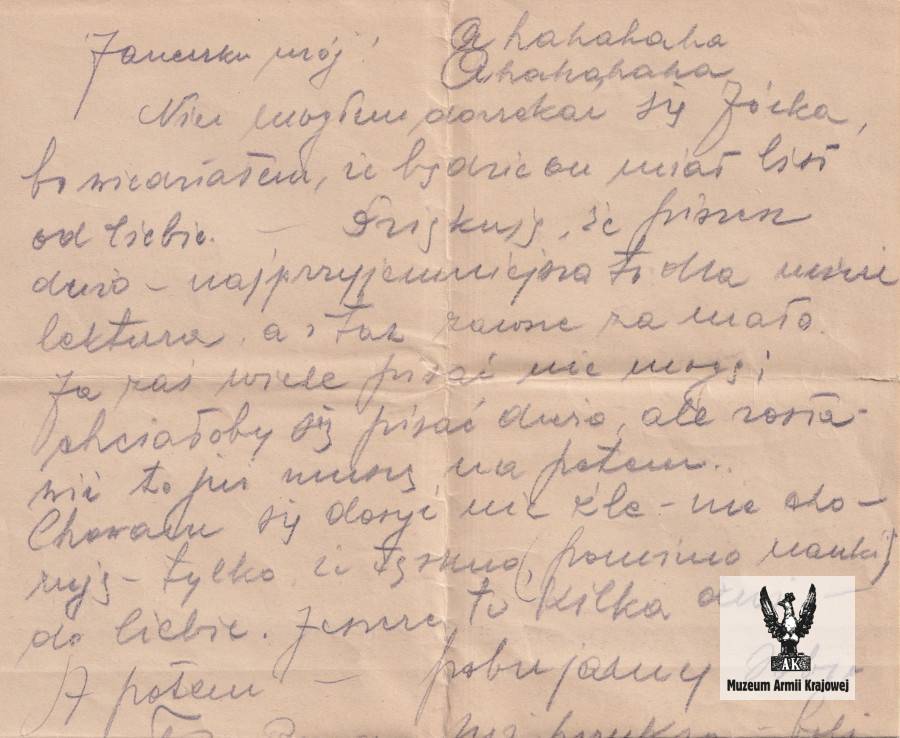 mój! Ahahahaha
Ahahahaha
Nie mogłem doczekać się Józka,
bo wiedziałem, że będzie on miał list
od Ciebie. — Dziękuję, że piszesz
dużo – najprzyjemniejsza to dla mnie
lektura, a i tak zawsze za mało.
Ja zaś wiele pisać nie mogę;
chciałoby się pisać dużo, ale zosta-
wić to już muszę na potem..
Chowam się dosyć nie źle – nie cho-
ruję – tylko że tęskno (pomimo nauki)
do Ciebie. Jeszcze to kilka dni –
A potem — pobujamy
AK
Muzeum Armii Krajowej